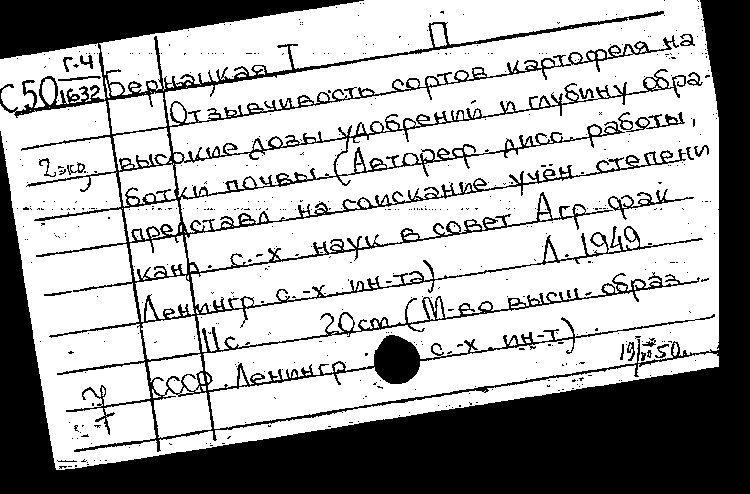 Г.ч
С50/1632 Бернацкая Т П
Отзывчивость сортов картофеля на
высокие дозы удобрений и глубину обра-
2экз. ботки почвы. (Автореф. дисс. работы,
представл. на соискание учён. степени
канд. с.-х. наук в совет Агр. фак
Ленингр. с.-х. ин-та). Л., 1949.
11с. 20cm. (М-во высш. образ.
СССР. Ленингр. с.-х. ин-т).